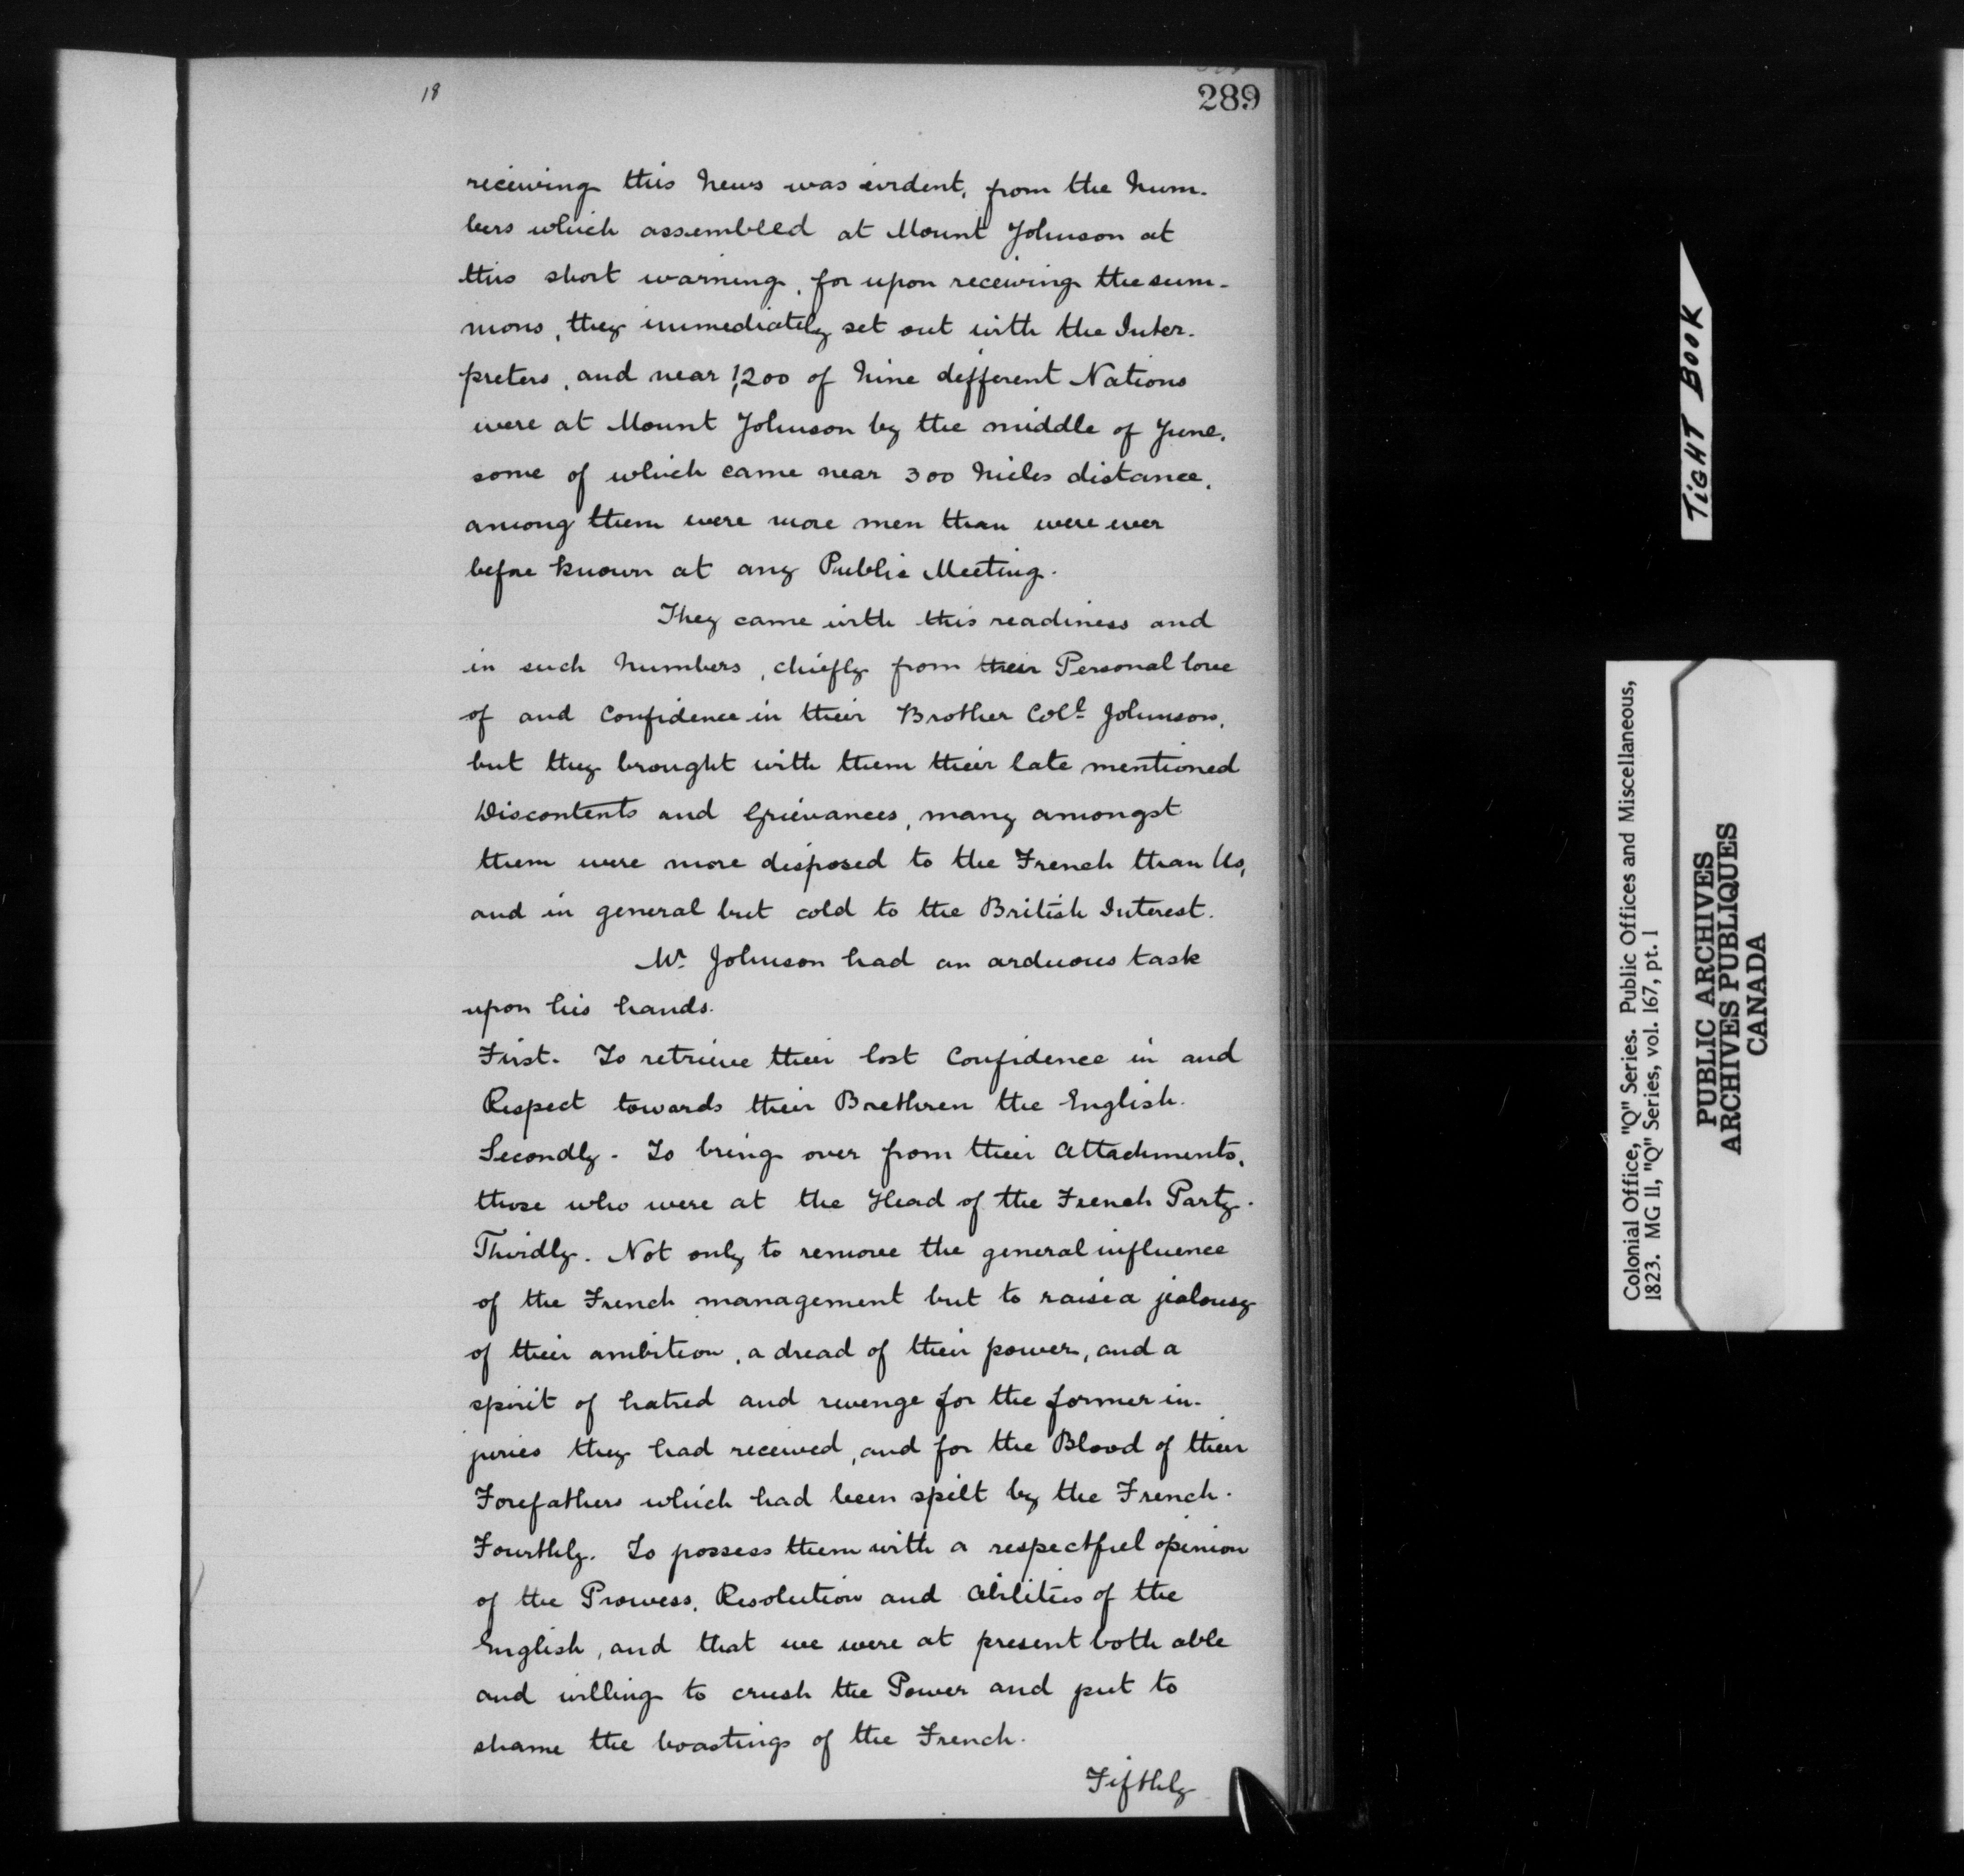 18
289
receiving this News was evident, from the Num-
bers which assembled at Mount Johnson at
this short warning, for upon receiving the sum-
mons, they immediately set out with the Inter-
preters, and near 1,200 of Nine different Nations
were at Mount Johnson by the middle of June,
some of which came near 300 Miles distance,
among them were more men than were ever
before known at any Public Meeting.
They came with this readiness and
in such Numbers, chiefly from their Personal love
of and Confidence in their Brother Coll. Johnson,
but they brought with them their late mentioned
Discontents and Grievances, many amongst
them were more disposed to the French than Us,
and in general but cold to the British Interest.
Mr. Johnson had an arduous task
upon his hands.
First. To retrieve their lost Confidence in and
Respect towards their Brethren the English.
Secondly. To bring over from their Attachments,
those who were at the Head of the French Party.
Thirdly. Not only to remove the general influence
of the French management but to raise a jealousy
of their ambition, a dread of their power, and a
spirit of hatred and revenge for the former in-
juries they had received, and for the Blood of their
Forefathers which had been spilt by the French.
Fourthly. To possess them with a respectful opinion
of the Prowess, Resolution and Abilities of the
English, and that we were at present both able
and willing to crush the Power and put to
shame the boastings of the French.
Fifthly
TIGHT BOOK
Colonial Office, "Q" Series. Public Offices and Miscellaneous,
1823. MG 11, "Q" Series, vol. 167, pt. 1
PUBLIC ARCHIVES
ARCHIVES PUBLIQUES
CANADA